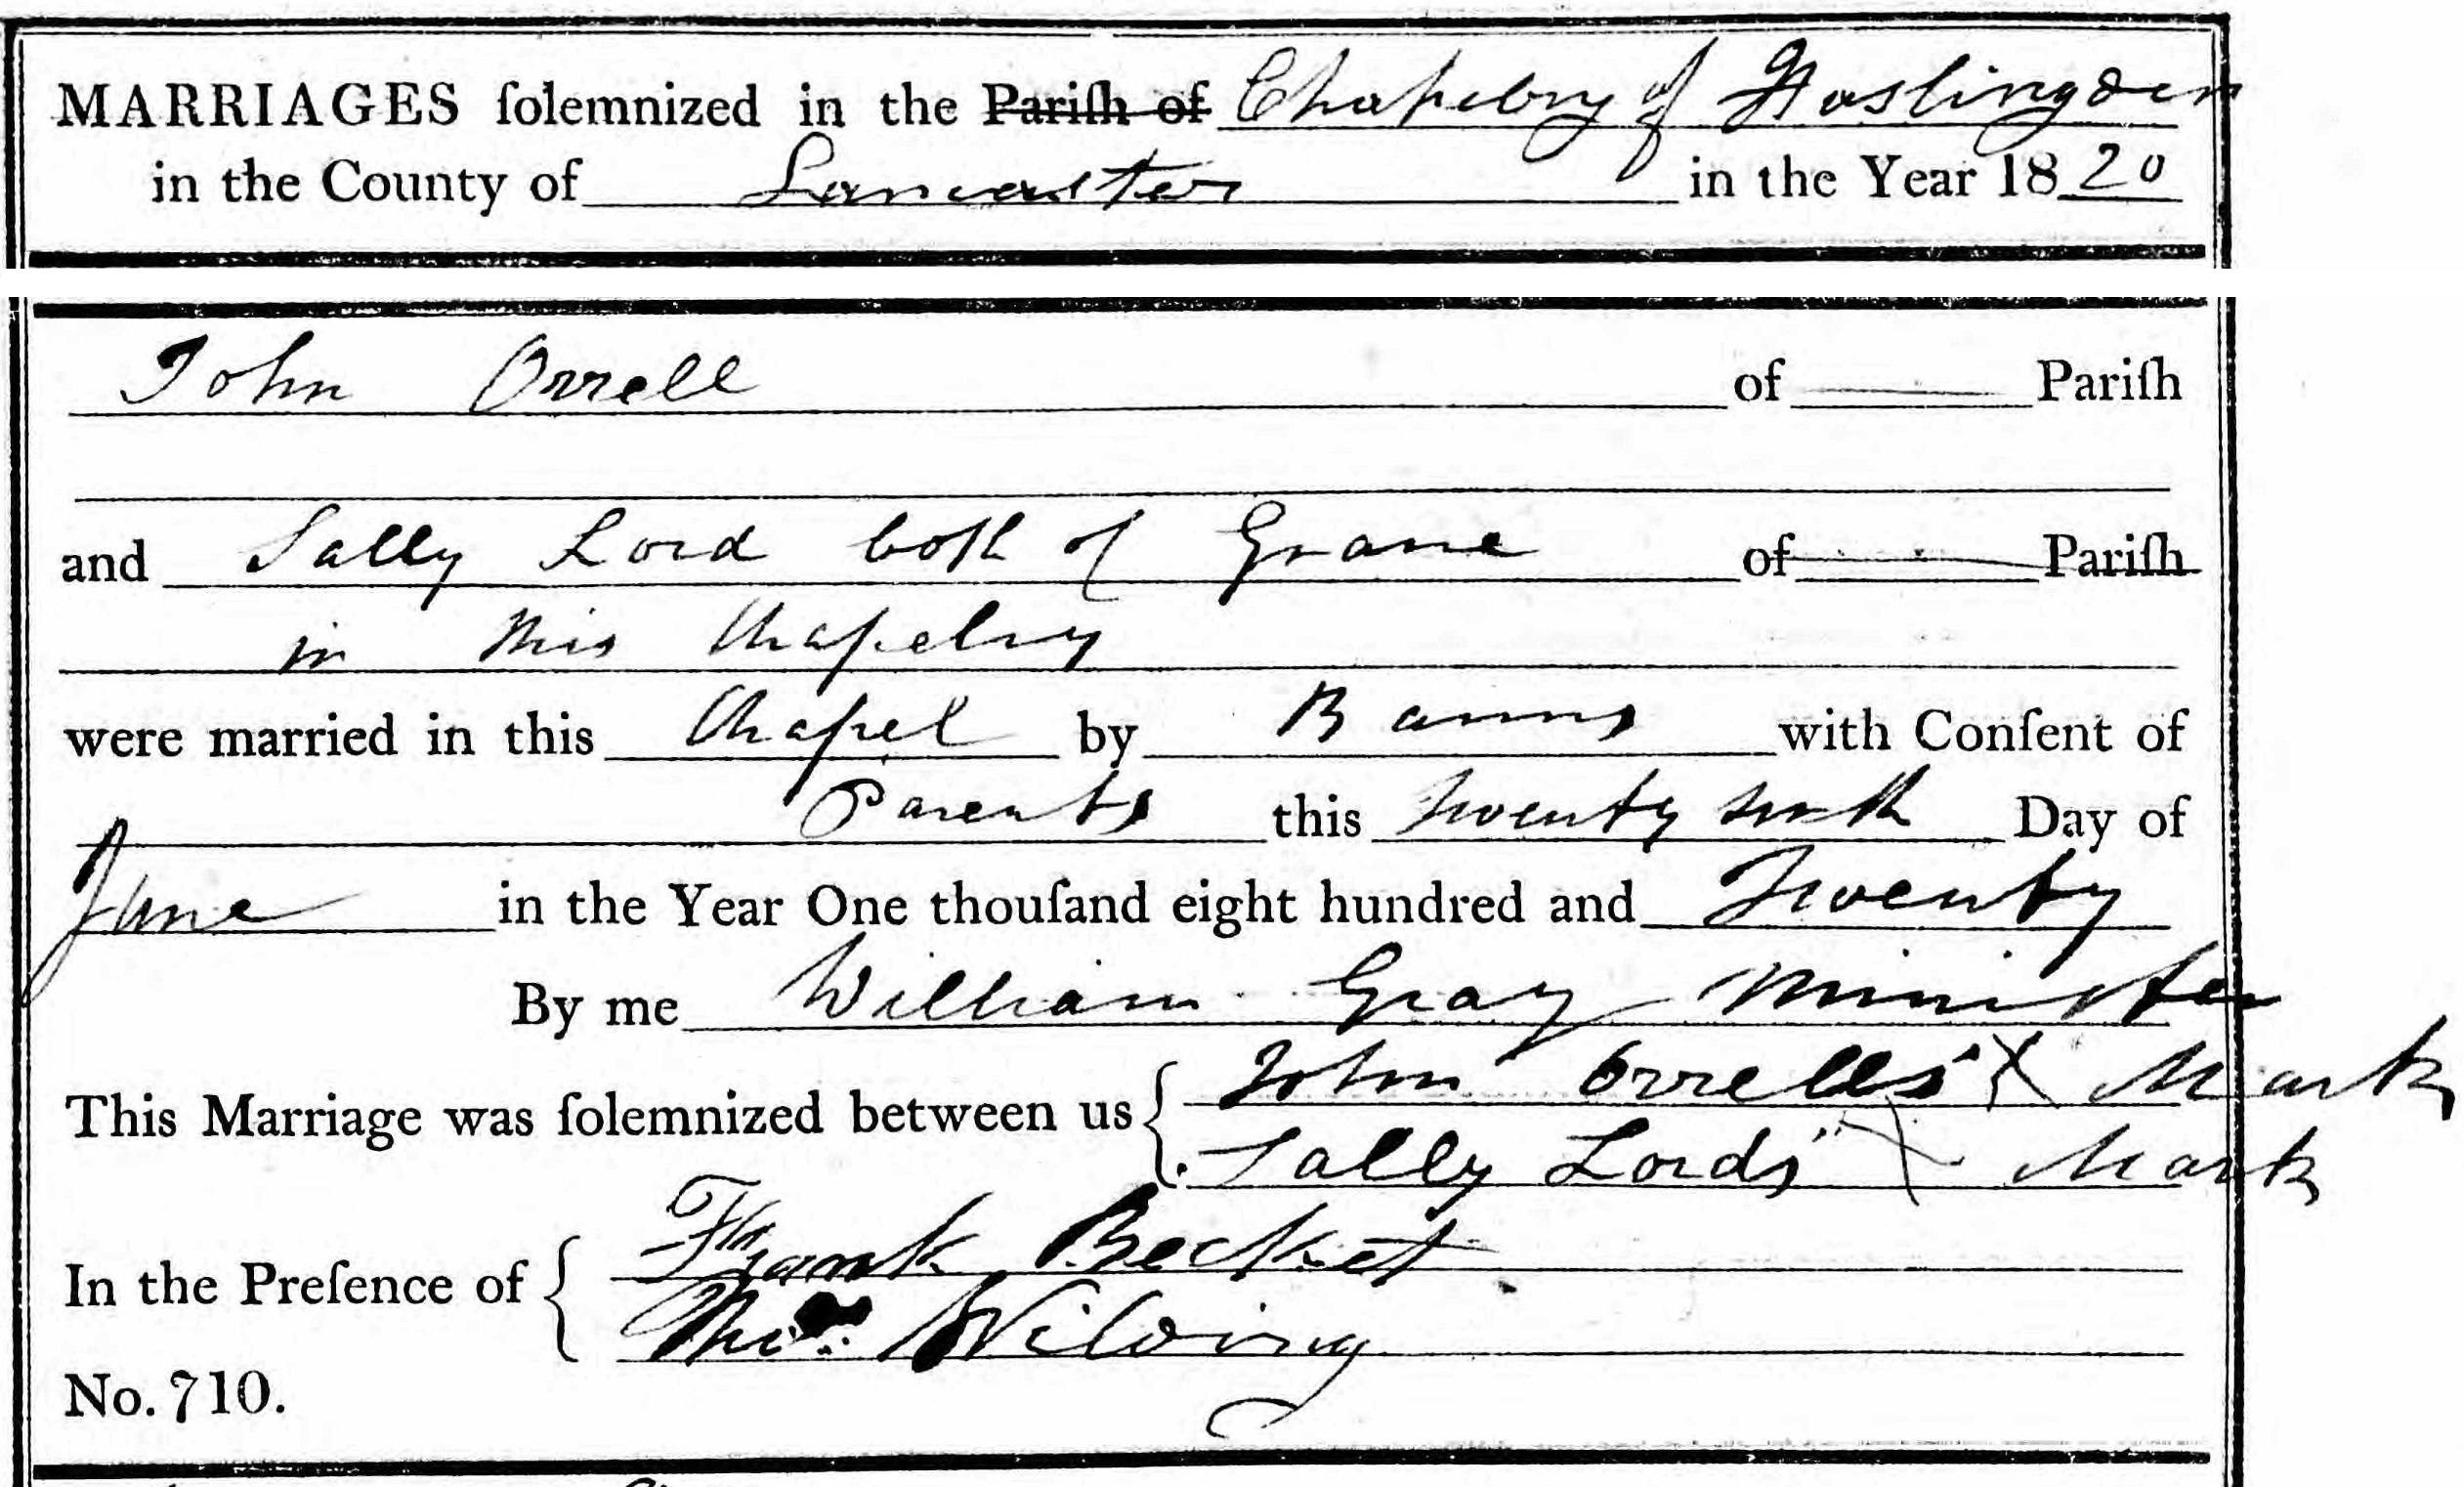 MARRIAGES ſolemnized in the Pariſh of Chapelry of Haslingden
in the County of Lancaster in the Year 1820
John Orrell of Pariſh
and Sally Lord both of Grane of Pariſh
in this Chapelry
were married in this Chapel by Banns with Conſent of
Parents this twenty sixth Day of
June in the Year One thouſand eight hundred and Twenty
By me William Gray Minister
This Marriage was ſolemnized between us { John Orrells' X Mark
Sally Lords' X Mark
In the Preſence of { Frank Becket
Thos. Wilding
No. 710.